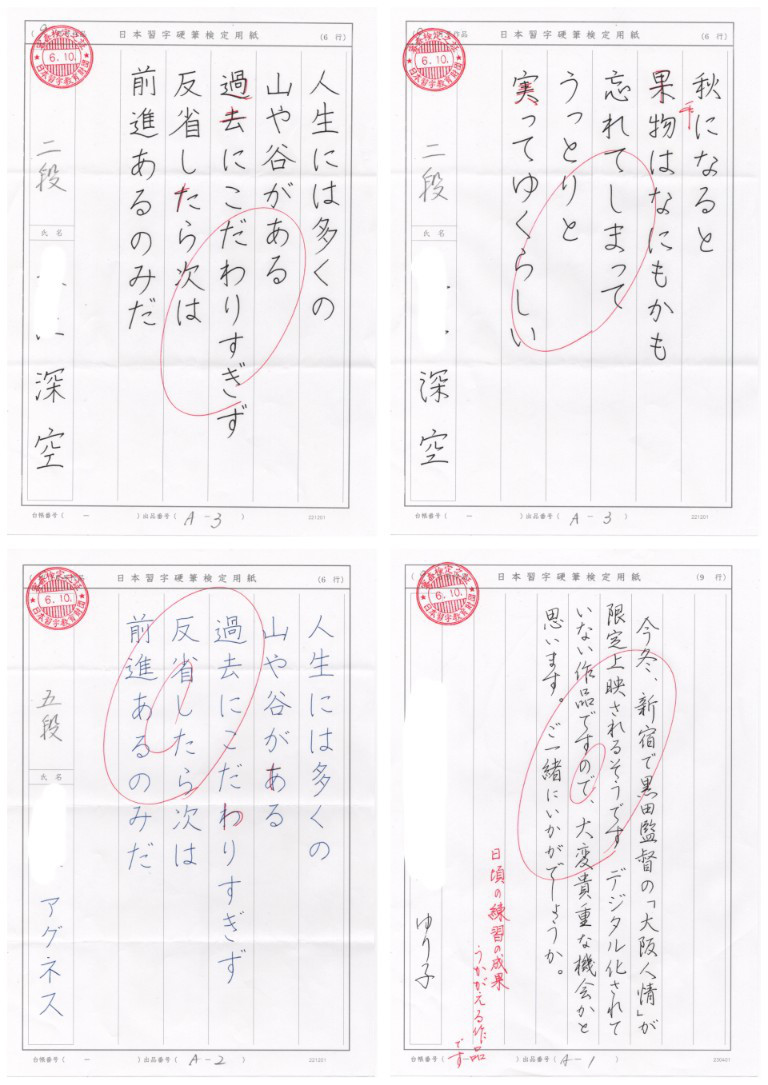 日本習字硬筆検定用紙
(6 行)
6.10.
日本習字教育財団
人生には多くの
山や谷がある
過去にこだわりすぎず
反省したら次は
前進あるのみだ
二段
氏名
深空
台帳番号( － )出品番号( A-3 )
221201
日本習字硬筆検定用紙
(6 行)
6.10.
日本習字教育財団
秋になると
果物はなにもかも
忘れてしまって
うっとりと
実ってゆくらしい
二段
氏名
深空
台帳番号( － )出品番号( A-3 )
221201
日本習字硬筆検定用紙
(6 行)
6.10.
日本習字教育財団
人生には多くの
山や谷がある
過去にこだわりすぎず
反省したら次は
前進あるのみだ
五段
氏名
アグネス
台帳番号( － )出品番号( A-2 )
221201
日本習字硬筆検定用紙
(9 行)
6.10.
日本習字教育財団
今冬、新宿で黒田監督の「大阪人情」が
限定上映されるそうです。デジタル化されて
いない作品ですので、大変貴重な機会かと
思います。ご一緒にいかがでしょうか。
日頃の練習の成果
うかがえる作品
です
ゆり子
台帳番号( － )出品番号( A-1 )
230401